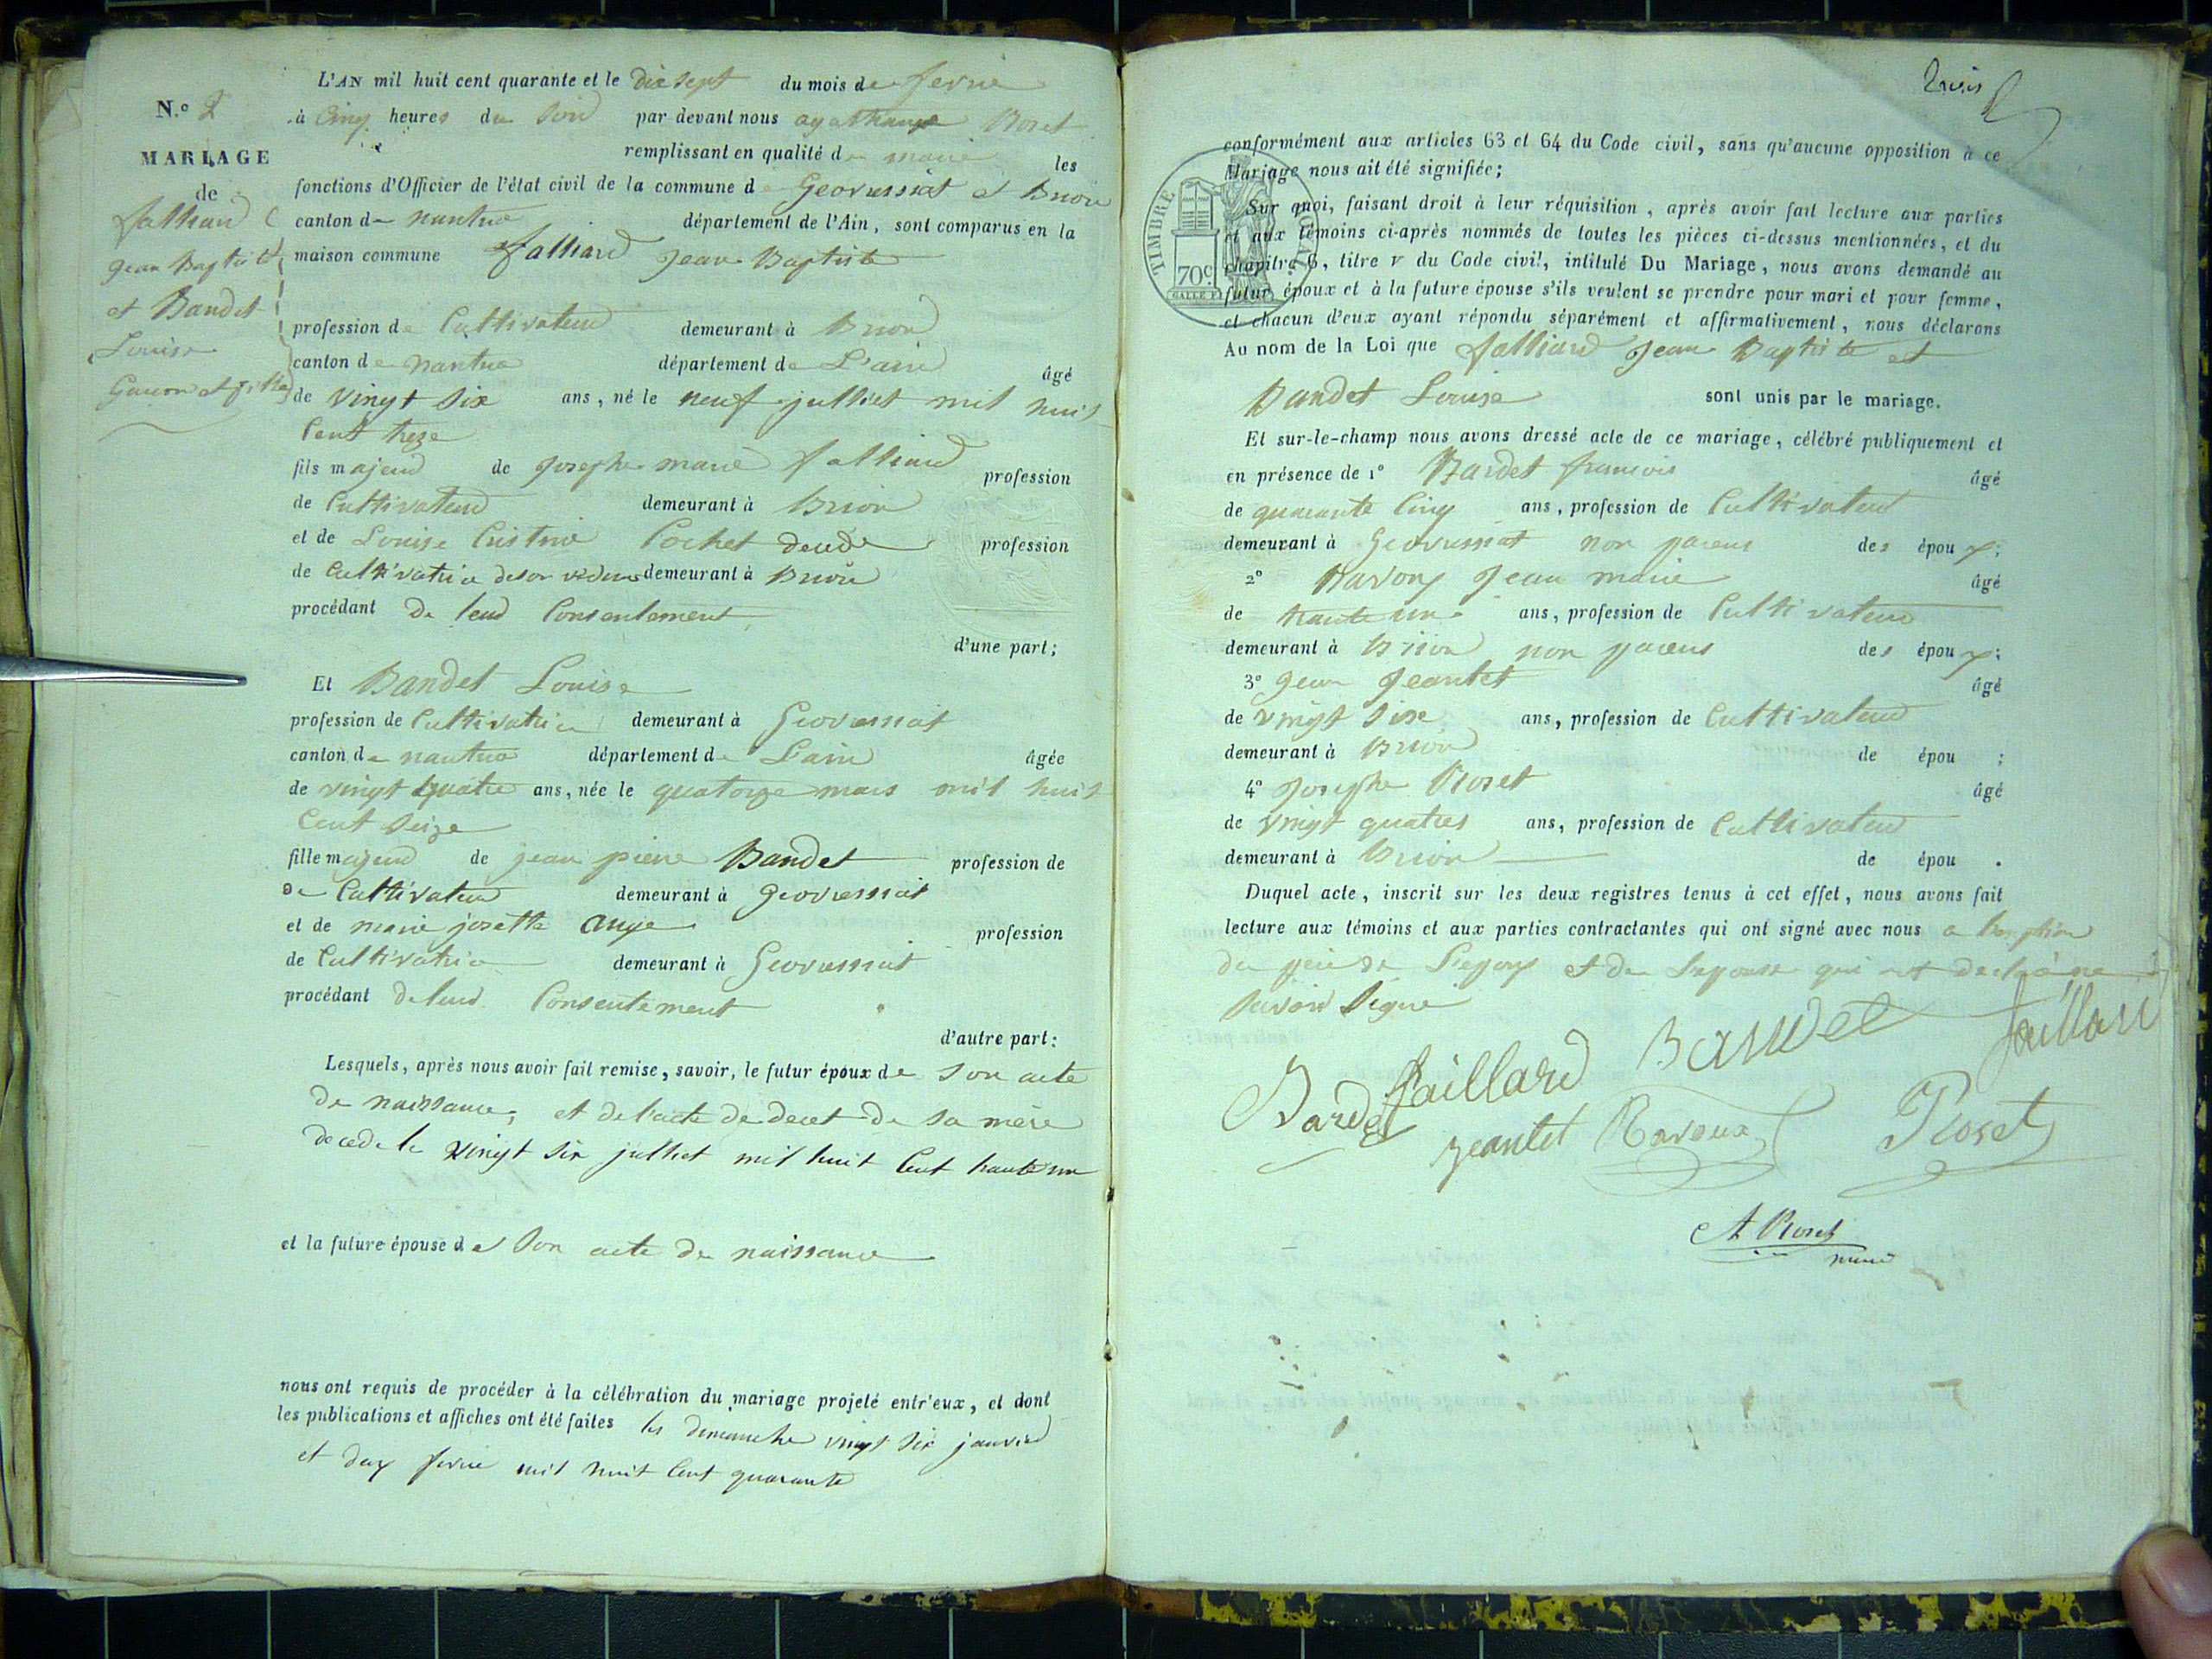 N.o 2
MARIAGE
de
falliard
jean Baptiste
et Bandet
Louise
Garcon et fille
L'AN mil huit cent quarante et le dix sept du mois de fevrie
à Cinq heures du Soir par-devant nous agathange Roset
remplissant en qualité de maire les
fonctions d'Officier de l'état civil de la commune de Geovressiat et Brion
canton de nantua département de l'Ain, sont comparus en la
maison commune falliard Jean Baptiste
profession de Cultivateur demeurant à Brion
canton de nantua département de L'ain âgé
de vingt Six ans, né le neuf julliet mil huit
Cent treze
fils majeur de Josephe marie falliard profession
de Cultivateur demeurant à Brion
et de Louise Cristine Pochet decede profession
de Cultivatrice demeurant à Brion
procédant de leur Consentement
d'une part;
Et Bandet Louise
profession de Cultivatrice demeurant à Geovressiat
canton de nantua département de Lain âgée
de vingt quatre ans, née le quatorze mars mil huit
Cent Seize
fille majeur de jean pierre Bandet profession de
de Cultivateur demeurant à Geovressiat
et de marie josette auge profession
de Cultivatrice demeurant à Geovressiat
procédant de leur Consentement
d'autre part:
Lesquels, après nous avoir fait remise, savoir, le futur époux de Son acte
de naissance, et de l'acte de decet de sa mère
decede le vingt six julliet mil huit Cent trante un
et la future épouse de Son acte de naissance
nous ont requis de procéder à la célébration du mariage projeté entr'eux, et dont
les publications et affiches ont été faites les dimanche vingt six janvier
et deux fevrie mil huit Cent quarante
trois
conformément aux articles 63 et 64 du Code civil, sans qu'aucune opposition à ce
Mariage nous ait été signifiée;
TIMBRE ROYAL
70c.
Sur quoi, faisant droit à leur réquisition, après avoir fait lecture aux parties
et aux témoins ci-après nommés de toutes les pièces ci-dessus mentionnées, et du
chapitre 6, titre v du Code civil, intitulé Du Mariage, nous avons demandé au
futur époux et à la future épouse s'ils veulent se prendre pour mari et pour femme,
et chacun d'eux ayant répondu séparément et affirmativement, nous déclarons
Au nom de la Loi que falliard Jean Baptiste et
Bandet Louise sont unis par le mariage.
Et sur-le-champ nous avons dressé acte de ce mariage, célébré publiquement et
en présence de 1° Bardet francois âgé
de quarante Cinq ans, profession de Cultivateur
demeurant à Geovressiat non parens des époux;
2° Ravoux Jean marie âgé
de trante un ans, profession de Cultivateur
demeurant à Brion non parens des époux;
3° Jean Jeantet âgé
de vingt Sixe ans, profession de Cultivateur
demeurant à Brion de épou ;
4° Josephe Roset âgé
de vingt quatres ans, profession de Cultivateur
demeurant à Brion de épou .
Duquel acte, inscrit sur les deux registres tenus à cet effet, nous avons fait
lecture aux témoins et aux parties contractantes qui ont signé avec nous a
du père de L'epoux et de L'epouse qui ont declaré ne
Savoir Signe
Bardet faillard Bandet faillard
jeantet Ravoux Roset
A Roset
maire